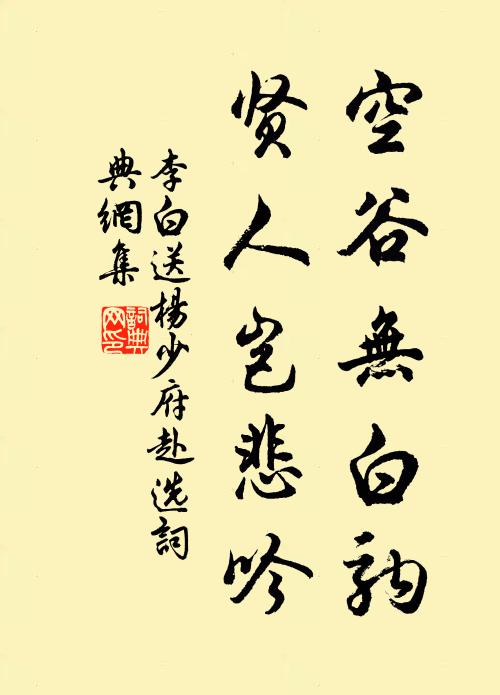 空谷無白駒
贤人岂悲吟
李白送楊少府赴选詞
典網集
詞典
网印